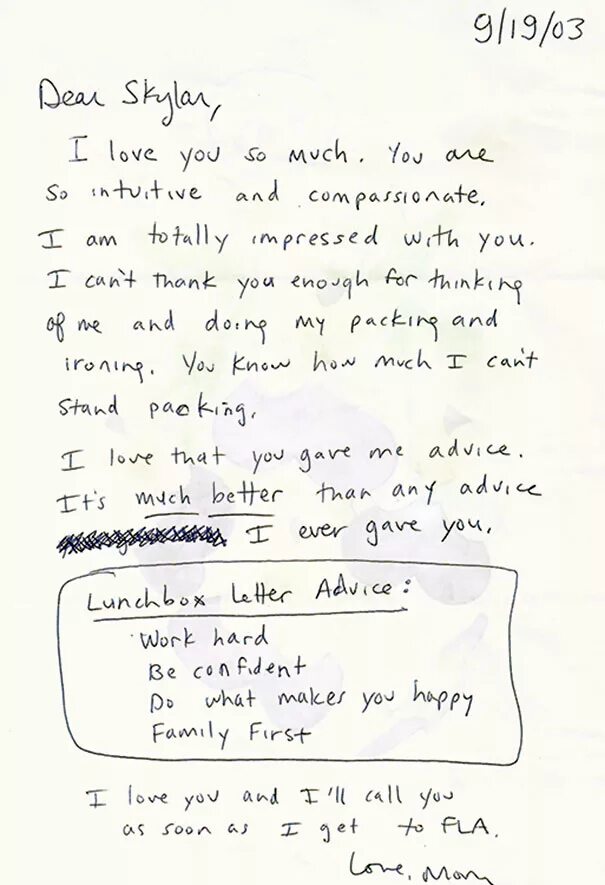 9/19/03
Dear Skylar,
I love you so much. You are
so intuitive and compassionate.
I am totally impressed with you.
I can't thank you enough for thinking
of me and doing my packing and
ironing. You know how much I can't
stand packing.
I love that you gave me advice.
It's much better than any advice
I ever gave you.
Lunchbox Letter Advice:
Work hard
Be confident
Do what makes you happy
Family First
I love you and I'll call you
as soon as I get to FLA.
Love, Mom